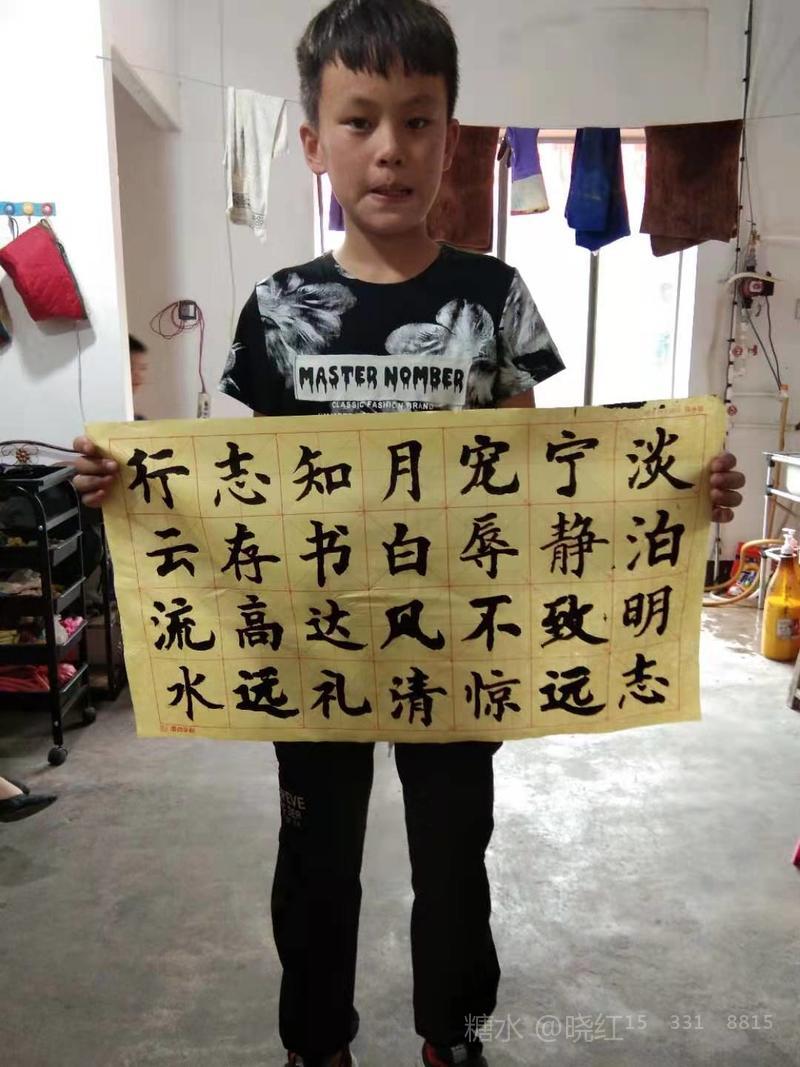 MASTER NOMBER
CLASSIC FASHION BRAND
淡泊明志
宁静致远
宠辱不惊
月白风清
知书达礼
志存高远
行云流水
糖水 @晓红15 331 8815